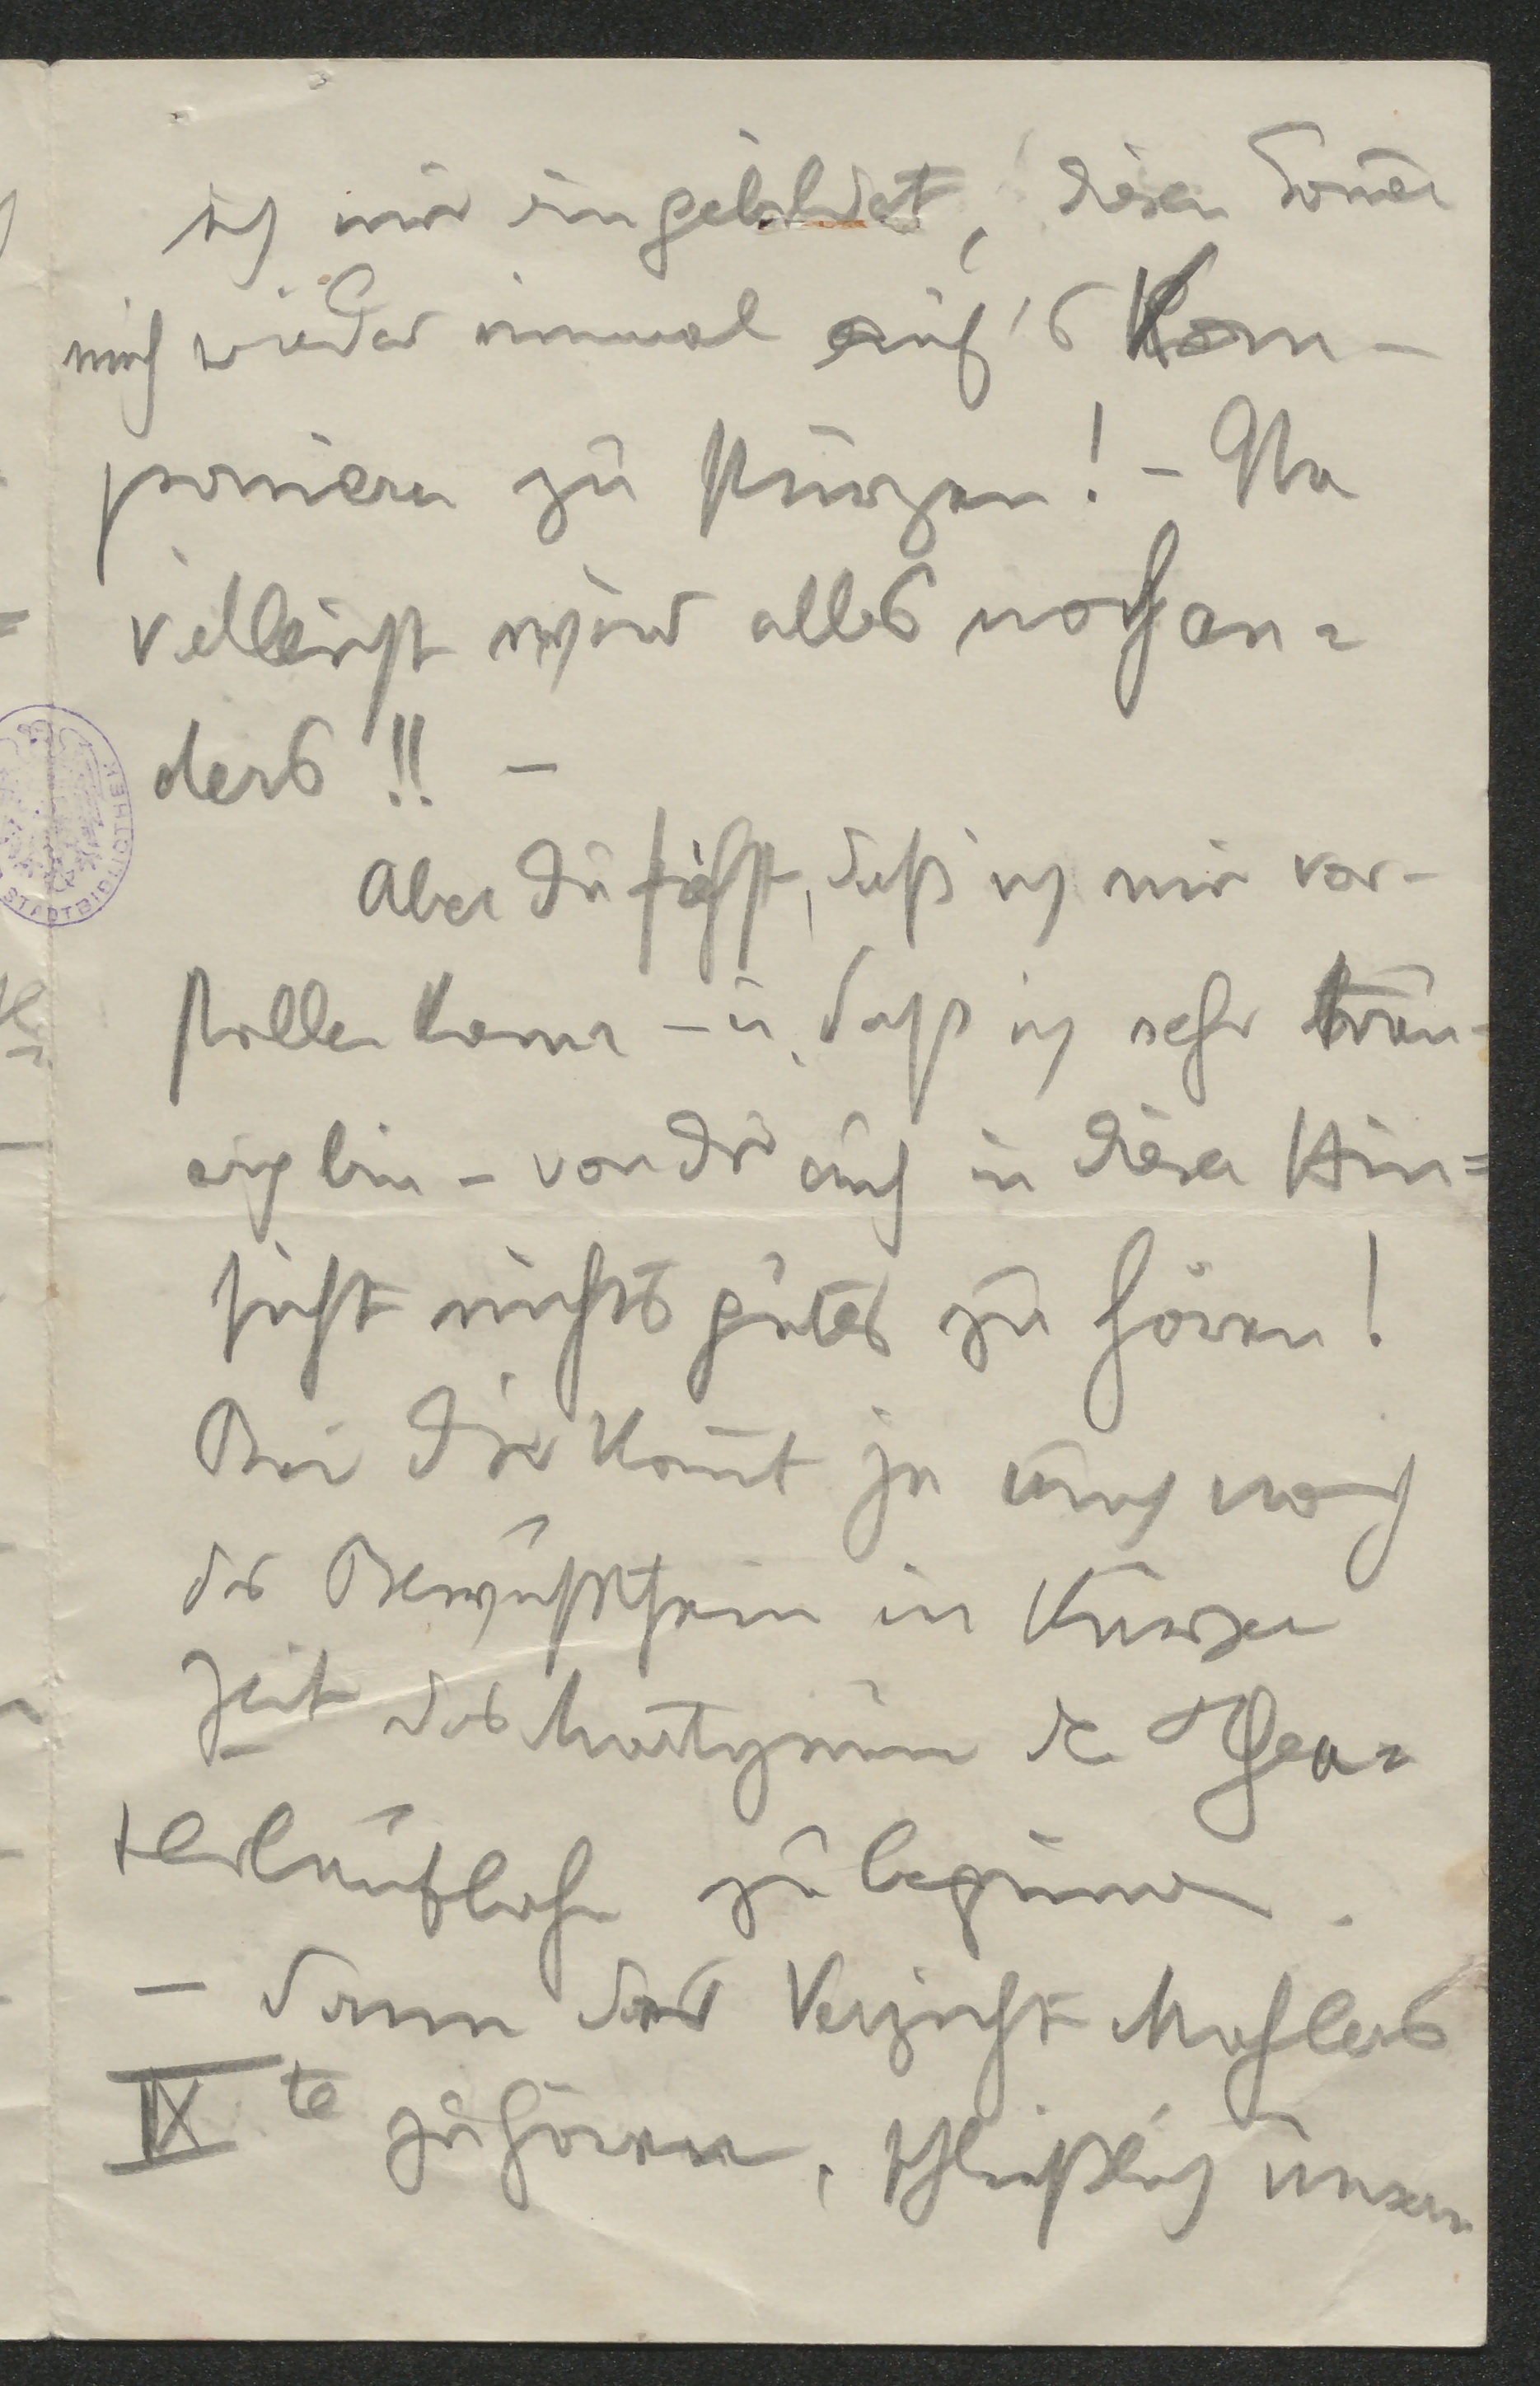 ich mir eingebildet, diesen Sommer
mich wieder einmal auf's Kom-
ponieren zu stürzen! – Na
vielleicht wird alles noch an=
ders!! –
Aber Du siehst, daß ich mir vor-
stellen kann – u. daß ich sehr trau-
rig bin – von Dir auch in dieser Hin=
sicht nichts gutes zu hören!
Bei Dir kom̄t ja auch noch
das Bewußtsein in kurzer
Zeit das Martyrium der Thea=
terlaufbahn zu beginnen.
– dann der Verzicht Mahlers
IX te zu hören, schließlich unser
STADTBIBLIOTHEK